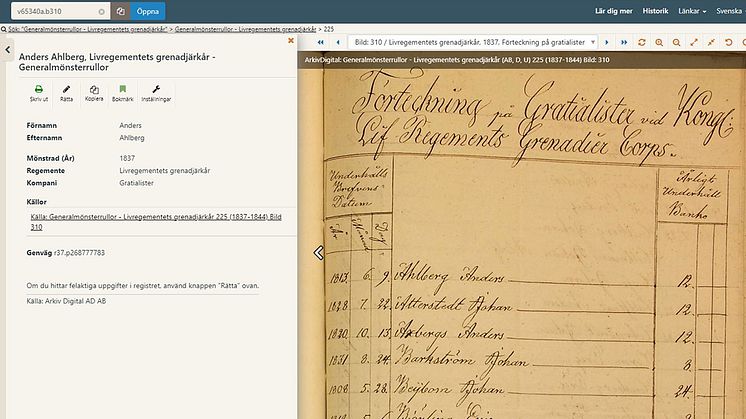 v65340a.b310 Öppna Lär dig mer Historik Länkar Svenska
Sök: "Generalmönsterrullor - Livregementets grenadjärkår" > Generalmönsterrullor - Livregementets grenadjärkår > 225
Bild: 310 / Livregementets grenadjärkår. 1837. Förteckning på gratialister
Anders Ahlberg, Livregementets grenadjärkår -
Generalmönsterrullor
Skriv ut Rätta Kopiera Bokmärk Inställningar
Förnamn Anders
Efternamn Ahlberg
Mönstrad (År) 1837
Regemente Livregementets grenadjärkår
Kompani Gratialister
Källor
Källa: Generalmönsterrullor - Livregementets grenadjärkår 225 (1837-1844) Bild
310
Genväg r37.p268777783
Om du hittar felaktiga uppgifter i registret, använd knappen "Rätta" ovan.
Källa: Arkiv Digital AD AB
ArkivDigital: Generalmönsterrullor - Livregementets grenadjärkår (AB, D, U) 225 (1837-1844) Bild: 310
Förteckning på Gratialister vid Kongl:
Lif Regements Grenadier Corps.
Underhålls
Brefvens
Datum
Årligt
Underhåll
Banko
År Månad Dag
1813. 6. 9. Ahlberg Anders 12.
1828 7. 22. Atterstedt Johan 12.
1820. 10. 13. Axbergs Anders 12.
1831 8. 24. Barkström Johan 8.
1808 5. 28. Beijbom Johan 24.